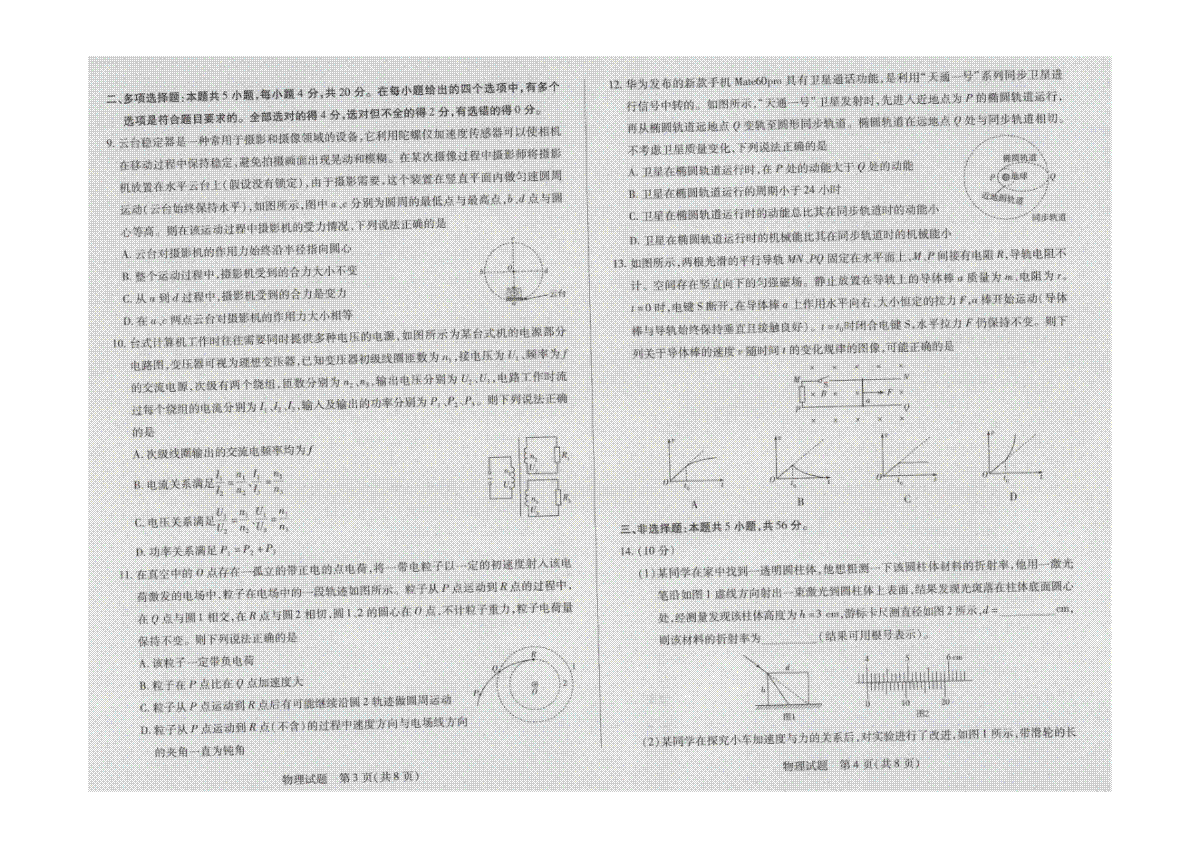 二、多项选择题:本题共5小题,每小题4分,共20分。在每小题给出的四个选项中,有多个
选项是符合题目要求的。全部选对的得4分,选对但不全的得2分,有选错的得0分。
9. 云台稳定器是一种常用于摄影和摄像领域的设备,它利用陀螺仪加速度传感器可以使相机
在移动过程中保持稳定,避免拍摄画面出现晃动和模糊。在某次摄像过程中摄影师将摄影
机放置在水平云台上(假设没有锁定),由于摄影需要,这个装置在竖直平面内做匀速圆周
运动(云台始终保持水平),如图所示,图中a、c分别为圆周的最低点与最高点,b、d点与圆
心等高。则在该运动过程中摄影机的受力情况,下列说法正确的是
A. 云台对摄影机的作用力始终沿半径指向圆心
B. 整个运动过程中,摄影机受到的合力大小不变
C. 从a到d过程中,摄影机受到的合力是变力
D. 在a、c两点云台对摄影机的作用力大小相等
c
b
O
d
云台
10. 台式计算机工作时往往需要同时提供多种电压的电源,如图所示为某台式机的电源部分
电路图,变压器可视为理想变压器,已知变压器初级线圈匝数为n₁,接电压为U₁、频率为f
的交流电源,次级有两个绕组,匝数分别为n₂、n₃,输出电压分别为U₂、U₃,电路工作时流
过每个绕组的电流分别为I₁、I₂、I₃,输入及输出的功率分别为P₁、P₂、P₃。则下列说法正确
的是
A. 次级线圈输出的交流电频率均为f
B. 电流关系满足I₁/I₂=n₁/n₂、I₁/I₃=n₁/n₃
C. 电压关系满足U₁/U₂=n₁/n₂、U₁/U₃=n₁/n₃
D. 功率关系满足P₁=P₂+P₃
n₁
U₁
n₂
U₂
R₁
n₃
U₃
11. 在真空中的O点存在一孤立的带正电的点电荷,将一带电粒子以一定的初速度射入该电
荷激发的电场中,粒子在电场中的一段轨迹如图所示。粒子从P点运动到R点的过程中,
在Q点与圆1相交,在R点与圆2相切,圆1、2的圆心在O点,不计粒子重力,粒子电荷量
保持不变。则下列说法正确的是
A. 该粒子一定带负电荷
B. 粒子在P点比在Q点加速度大
C. 粒子从P点运动到R点后有可能继续沿圆2轨迹做圆周运动
D. 粒子从P点运动到R点(不含)的过程中速度方向与电场线方向
的夹角一直为钝角
R
Q
P
O
1
2
物理试题 第3页(共8页)
12. 华为发布的新款手机Mate60pro具有卫星通话功能,是利用“天通一号”系列同步卫星进
行信号中转的。如图所示,“天通一号”卫星发射时,先进入近地点为P的椭圆轨道运行,
再从椭圆轨道远地点Q变轨至圆形同步轨道。椭圆轨道在远地点Q处与同步轨道相切。
不考虑卫星质量变化,下列说法正确的是
A. 卫星在椭圆轨道运行时,在P处的动能大于Q处的动能
B. 卫星在椭圆轨道运行的周期小于24小时
C. 卫星在椭圆轨道运行时的动能总比其在同步轨道时的动能小
D. 卫星在椭圆轨道运行时的机械能比其在同步轨道时的机械能小
椭圆轨道
P
地球
Q
近地圆轨道
同步轨道
13. 如图所示,两根光滑的平行导轨MN、PQ固定在水平面上,M、P间接有电阻R,导轨电阻不
计。空间存在竖直向下的匀强磁场。静止放置在导轨上的导体棒a质量为m,电阻为r。
t=0时,电键S断开,在导体棒a上作用水平向右、大小恒定的拉力F,a棒开始运动(导体
棒与导轨始终保持垂直且接触良好)。t=t₀时闭合电键S,水平拉力F仍保持不变。则下
列关于导体棒的速度v随时间t的变化规律的图像,可能正确的是
M
S
N
B
F
P
a
Q
v
O
t₀
t
A
v
O
t₀
t
B
v
O
t₀
t
C
v
O
t₀
t
D
三、非选择题:本题共5小题,共56分。
14. (10分)
(1)某同学在家中找到一透明圆柱体,他想粗测一下该圆柱体材料的折射率,他用一激光
笔沿如图1虚线方向射出一束激光到圆柱体上表面,结果发现光斑落在柱体底面圆心
处,经测量发现该柱体高度为h=3 cm,游标卡尺测直径如图2所示,d=________cm,
则该材料的折射率为________(结果可用根号表示)。
d
h
图1
4 5 6 cm
0 10 20
图2
(2)某同学在探究小车加速度与力的关系后,对实验进行了改进,如图1所示,带滑轮的长
物理试题 第4页(共8页)